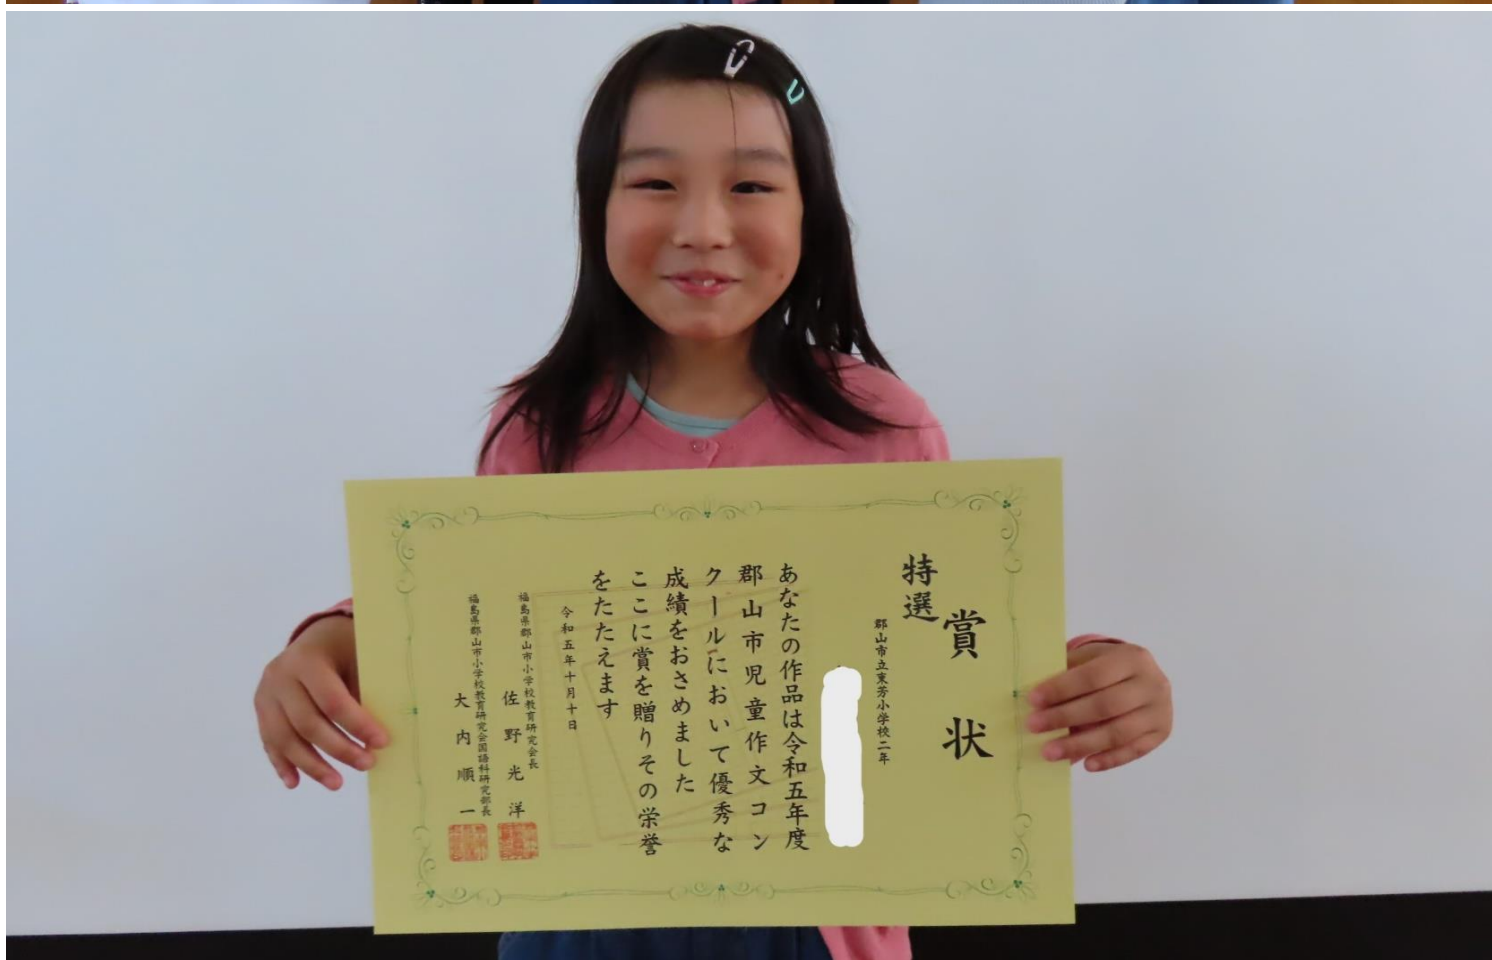 賞状
特選
郡山市立東芳小学校二年
あなたの作品は令和五年度
郡山市児童作文コン
クールにおいて優秀な
成績をおさめました
ここに賞を贈りその栄誉
をたたえます
令和五年十月十日
福島県郡山市小学校教育研究会長
佐野光洋
福島県郡山市小学校教育研究会国語科研究部長
大内順一